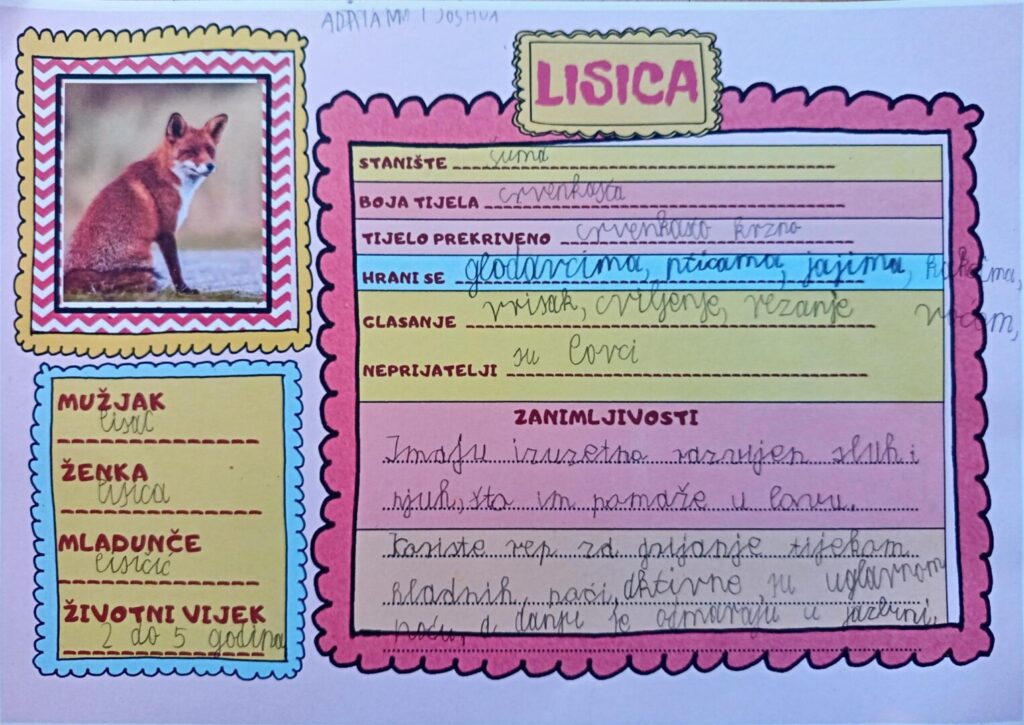 ADRIANO I JOSHUA
LISICA
STANIŠTE šuma
BOJA TIJELA crvenkasta
TIJELO PREKRIVENO crvenkasto krzno
HRANI SE glodavcima, pticama, jajima, kukcima,
voćem,
GLASANJE vrisak, cviljenje, rezanje
NEPRIJATELJI su lovci
ZANIMLJIVOSTI
Imaju izuzetno razvijen sluh i
njuh, što im pomaže u lovu.
Koriste rep za grijanje tijekom
hladnih noći, aktivne su uglavnom
noću, a danju se odmaraju u jazbini.
MUŽJAK
lisac
ŽENKA
lisica
MLADUNČE
lisičić
ŽIVOTNI VIJEK
2 do 5 godina